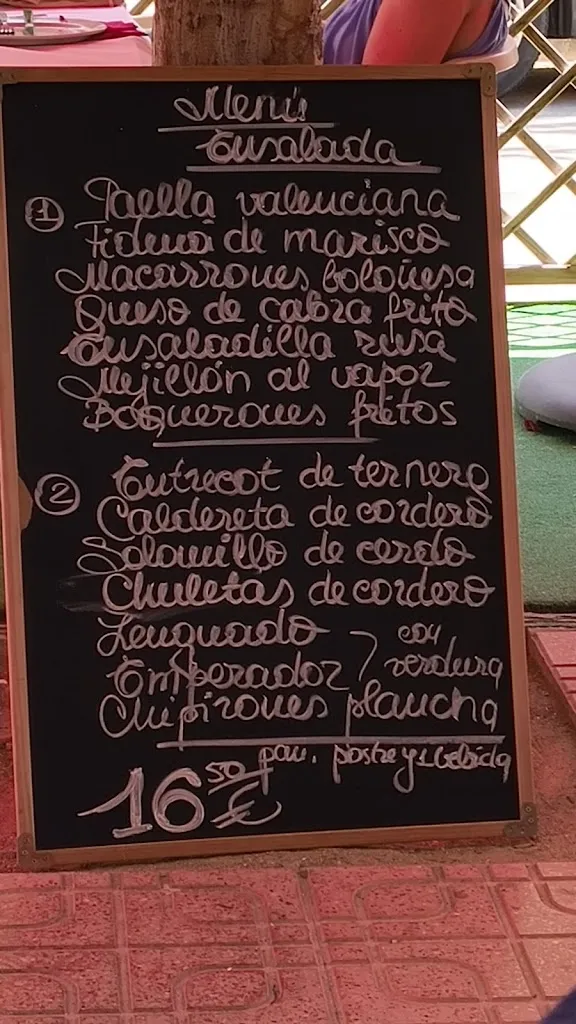 Menú
Ensalada
1 Paella valenciana
Fideuá de marisco
Macarrones boloñesa
Queso de cabra frito
Ensaladilla rusa
Mejillón al vapor
Boquerones fritos
2 Entrecot de ternera
Caldereta de cordero
Solomillo de cerdo
Chuletas de cordero
Lenguado con
Emperador verdura
Chipirones plancha
pan, postre y 1 bebida
16 50 €